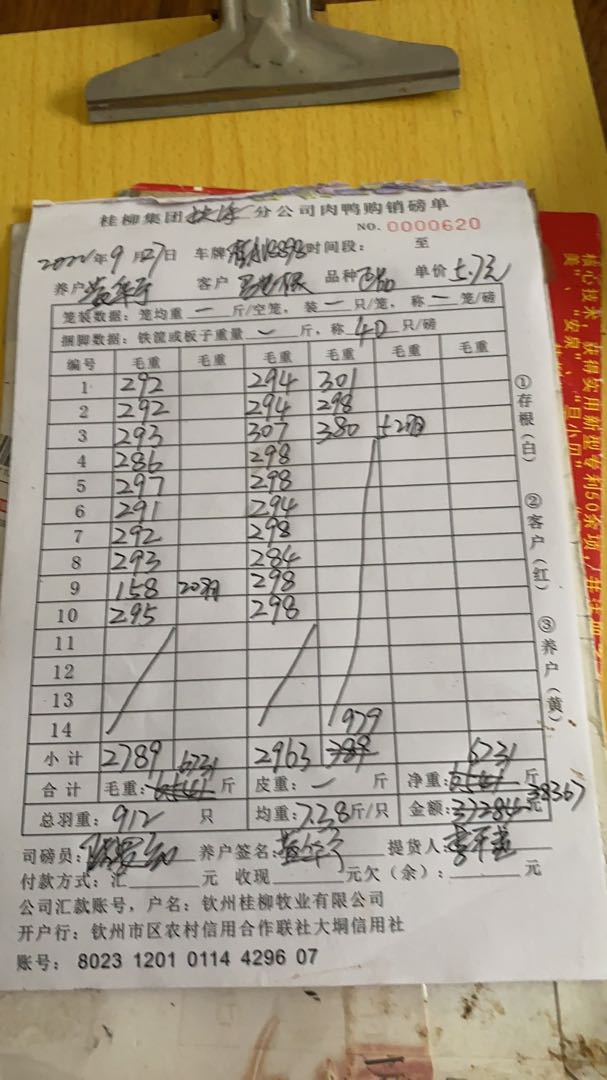 桂柳集团 分公司肉鸭购销磅单
NO. 0000620
2022年9月27日 车牌 时间段: 至
养户 客户 品种 单价5.7元
笼装数据: 笼均重 一 斤/空笼, 装 一 只/笼, 称 一 笼/磅
捆脚数据: 铁篾或板子重量 一 斤, 称 40 只/磅
编号 毛重 毛重 毛重 毛重 毛重 毛重
1 292 294 301
2 292 294 298
3 293 307 380 52羽
4 286 298
5 297 298
6 291 294
7 292 298
8 293 284
9 158 20羽 298
10 295 298
11
12
13
14 979
小计 2789 2963 789 6731
合计 毛重: 6731 6541 斤 皮重: 一 斤 净重: 6541 斤
总羽重: 912 只 均重: 7.38斤/只 金额: 37284元 38367
司磅员: 养户签名: 提货人:
付款方式: 汇 元 收现 元欠(余): 元
公司汇款账号, 户名: 钦州桂柳牧业有限公司
开户行: 钦州市区农村信用合作联社大垌信用社
账号: 8023 1201 0114 4296 07
①存根(白)
②客户(红)
③养户(黄)
核心技术, 获得实用新型专利50余项